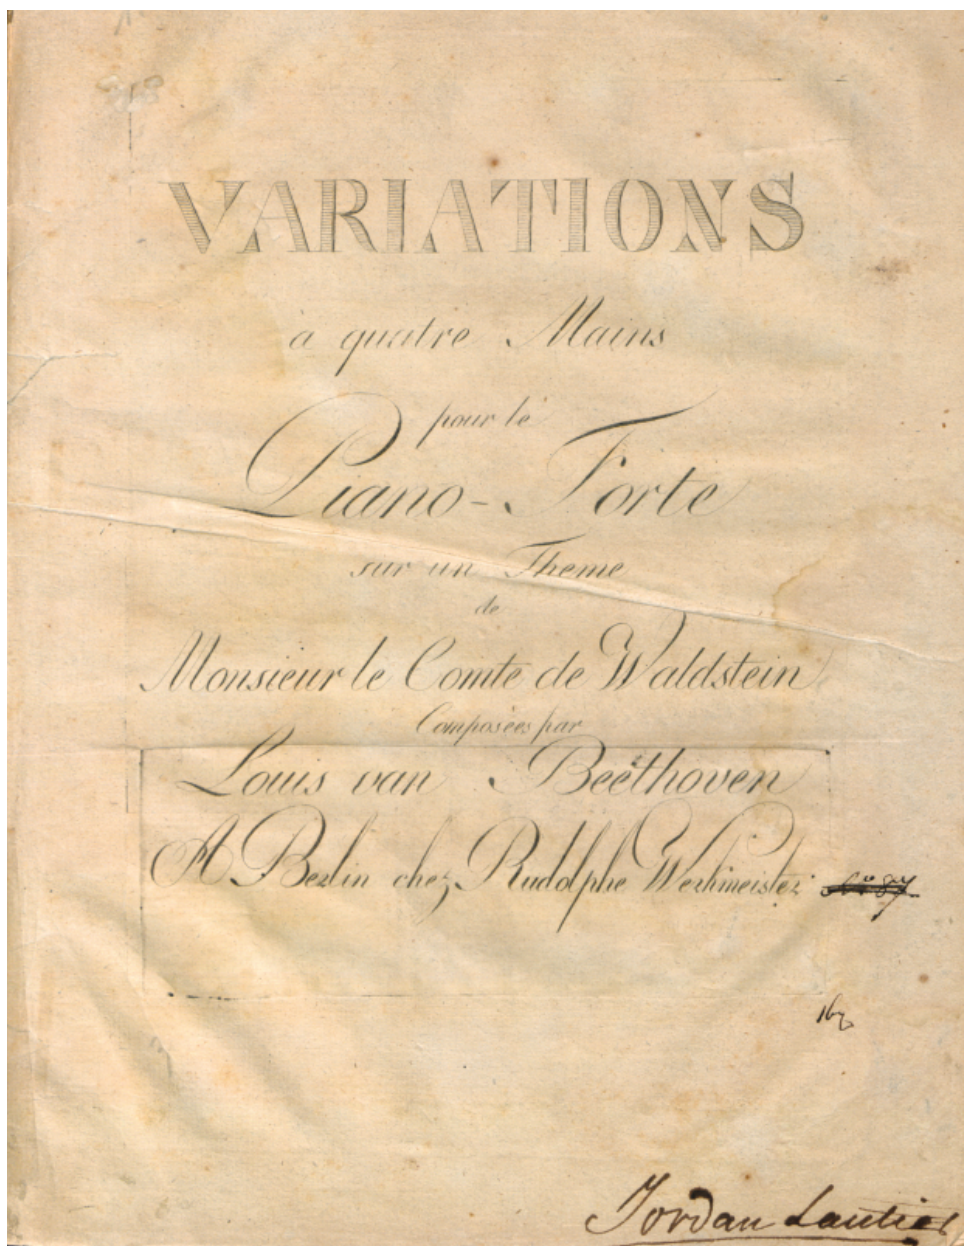 VARIATIONS
à quatre Mains
pour le
Piano-Forte
sur un Theme
de
Monsieur le Comte de Waldstein
Composées par
Louis van Beethoven
A Berlin chez Rudolphe Werkmeister
Jordan